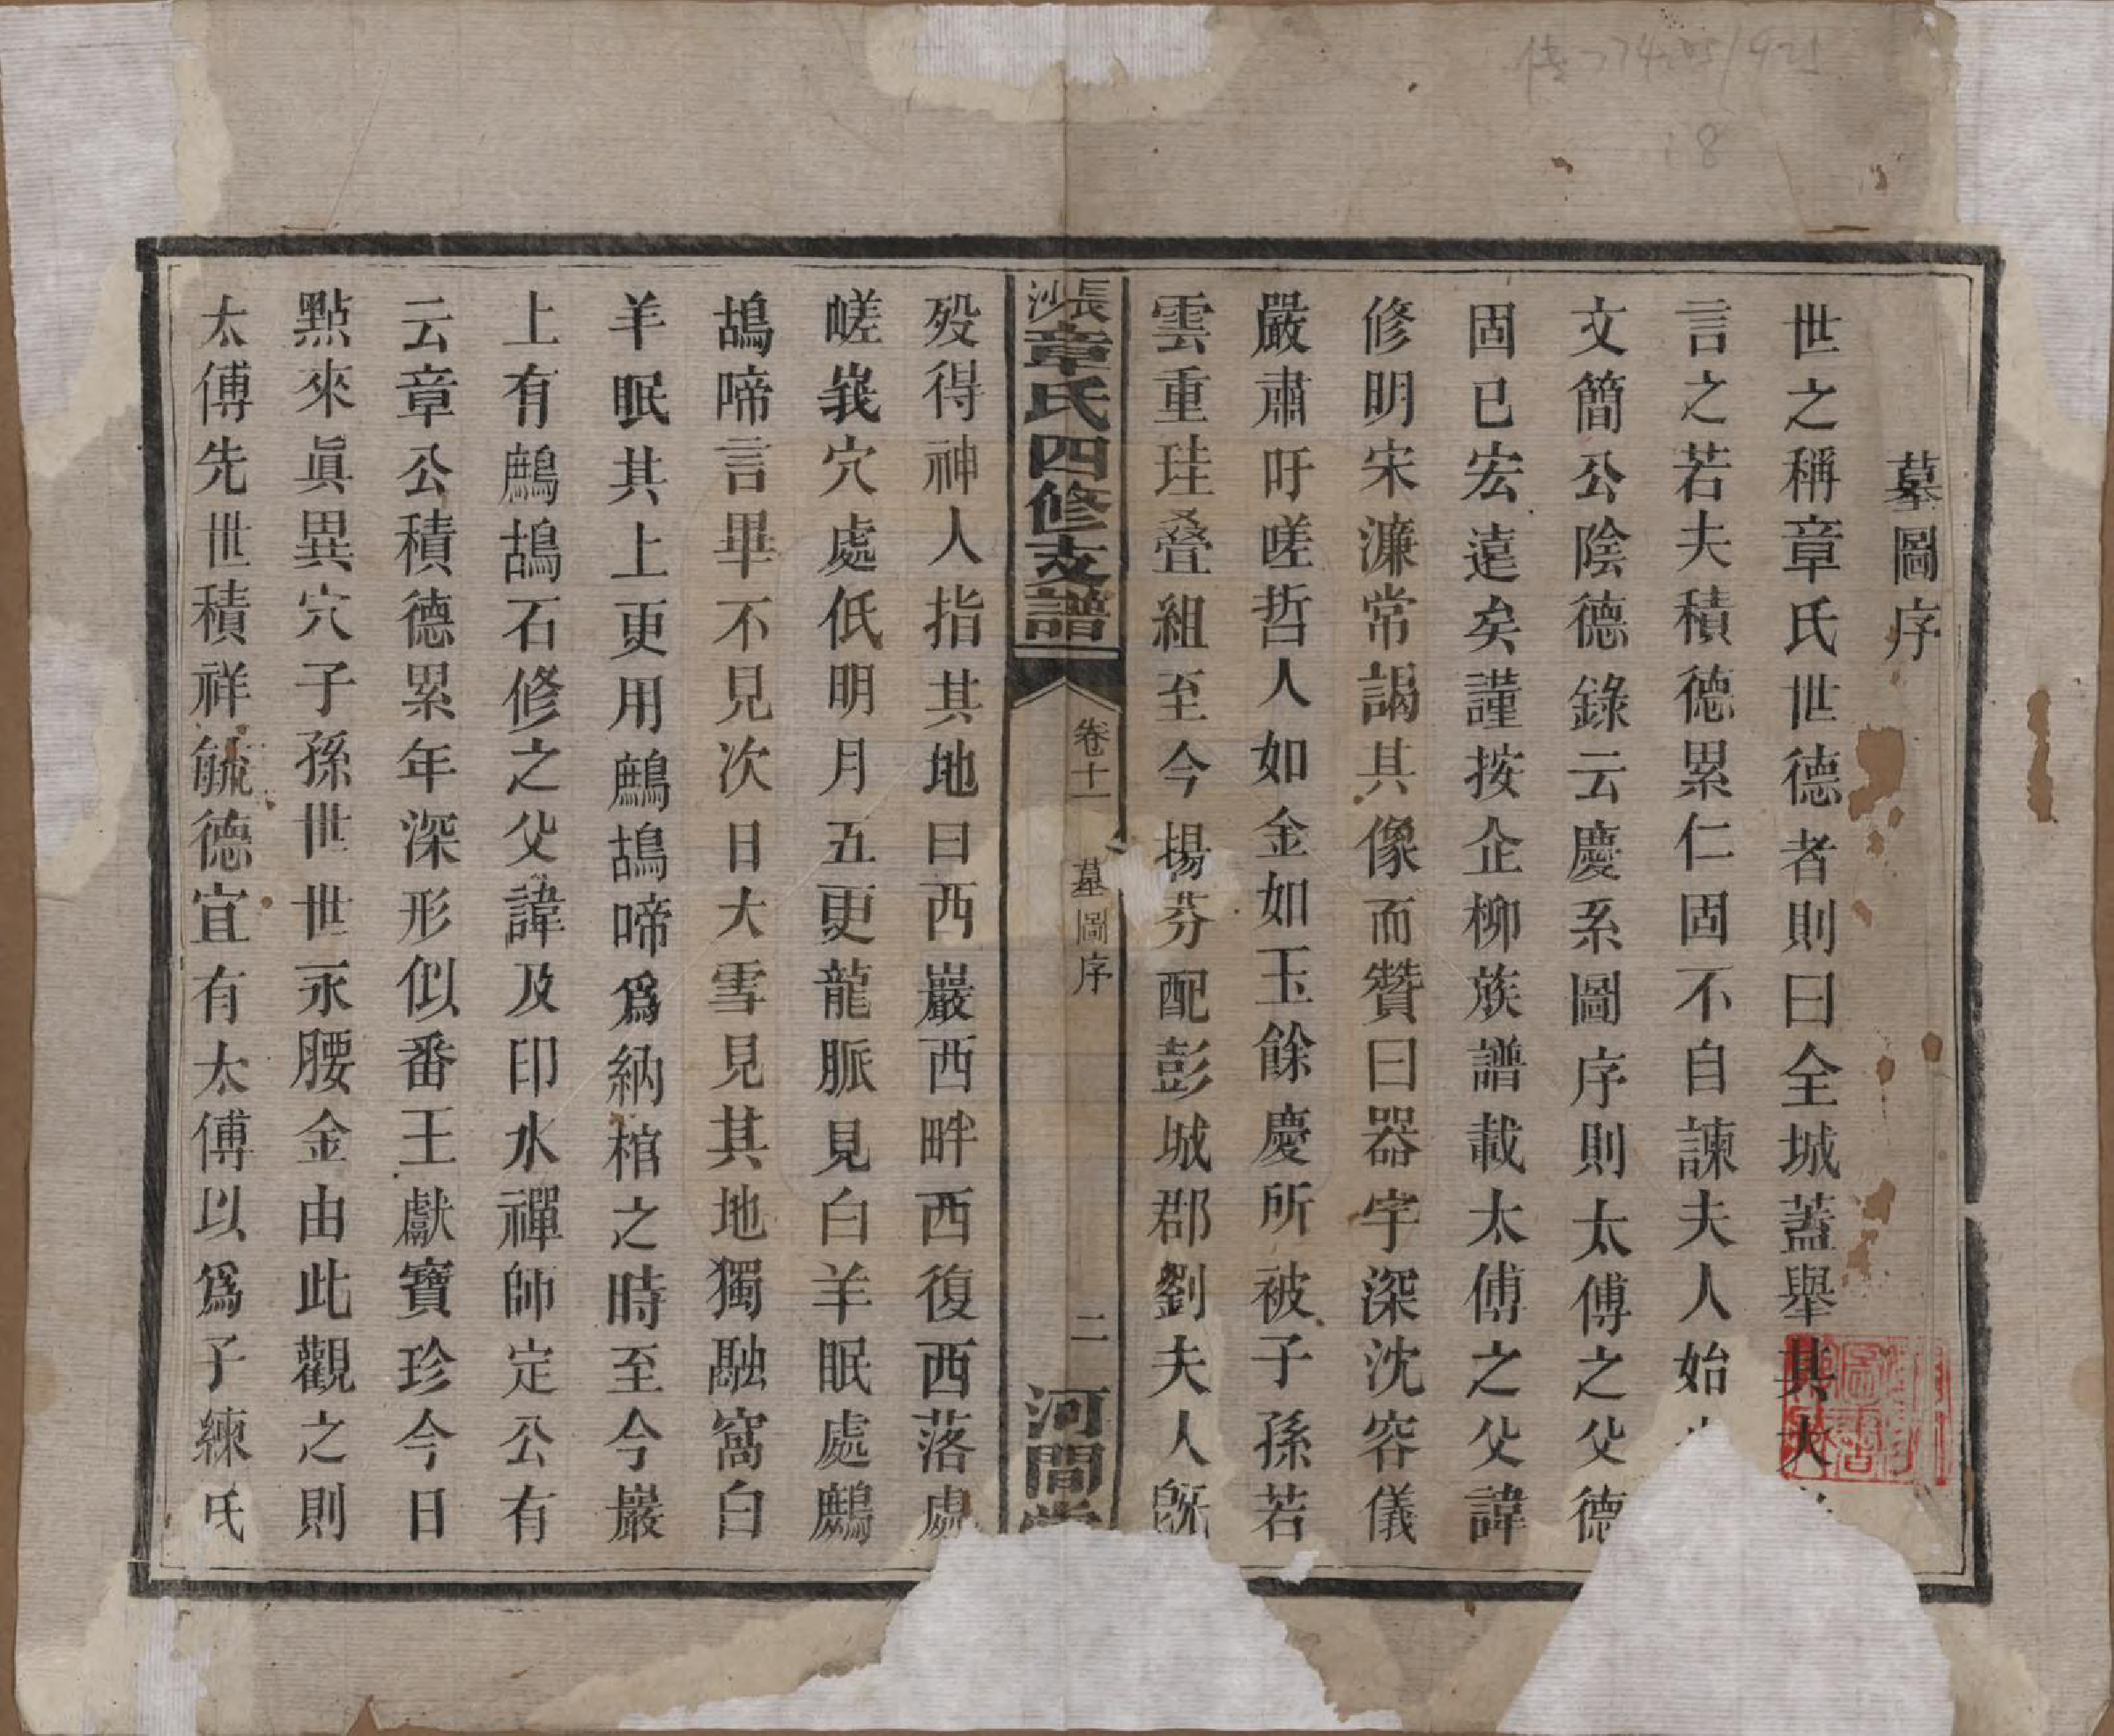 墓圖序
世之稱章氏世德者則曰全城蓋舉其大
言之若夫積德累仁固不自諫夫人始
文簡公陰德錄云慶系圖序則太傅之父德
固已宏遠矣謹按企柳族譜載太傅之父諱
修明宋濂常謁其像而贊曰器宇深沈容儀
嚴肅吁嗟哲人如金如玉餘慶所被子孫若
雲重珪叠組至今揚芬配彭城郡劉夫人既
長沙章氏四修支譜 卷十一 墓圖序 二 河間堂
歿得神人指其地曰西巖西畔西復西落處
嵯峩穴處低明月五更龍脈見白羊眠處鷓
鴣啼言畢不見次日大雪見其地獨融窩白
羊眠其上更用鷓鴣啼爲納棺之時至今巖
上有鷓鴣石修之父諱及印水禪師定公有
云章公積德累年深形似番王獻寶珍今日
點來眞異穴子孫世世永腰金由此觀之則
太傅先世積祥毓德宜有太傅以爲子練氏